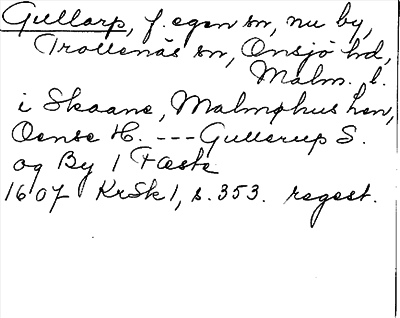 Gullarp, f. egen sn, nu by,
Trollenäs sn, Onsjö hd,
Malm. l.
i Skaane, Malmøhus Len,
Oense H. --- Gullerup S.
og By 1 Fæste
1607 KrSk 1, s. 353. regest.